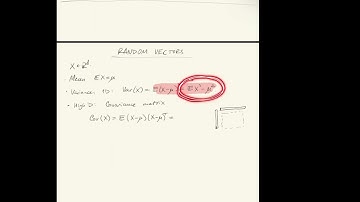 RANDOM VECTORS
X ∈ ℝᵈ
• Mean EX = μ
• Variance 1D: Var(X) = E(X-μ)² = EX² - μ²
• High D: Covariance matrix
Cov(X) = E(X-μ)(X-μ)ᵀ =